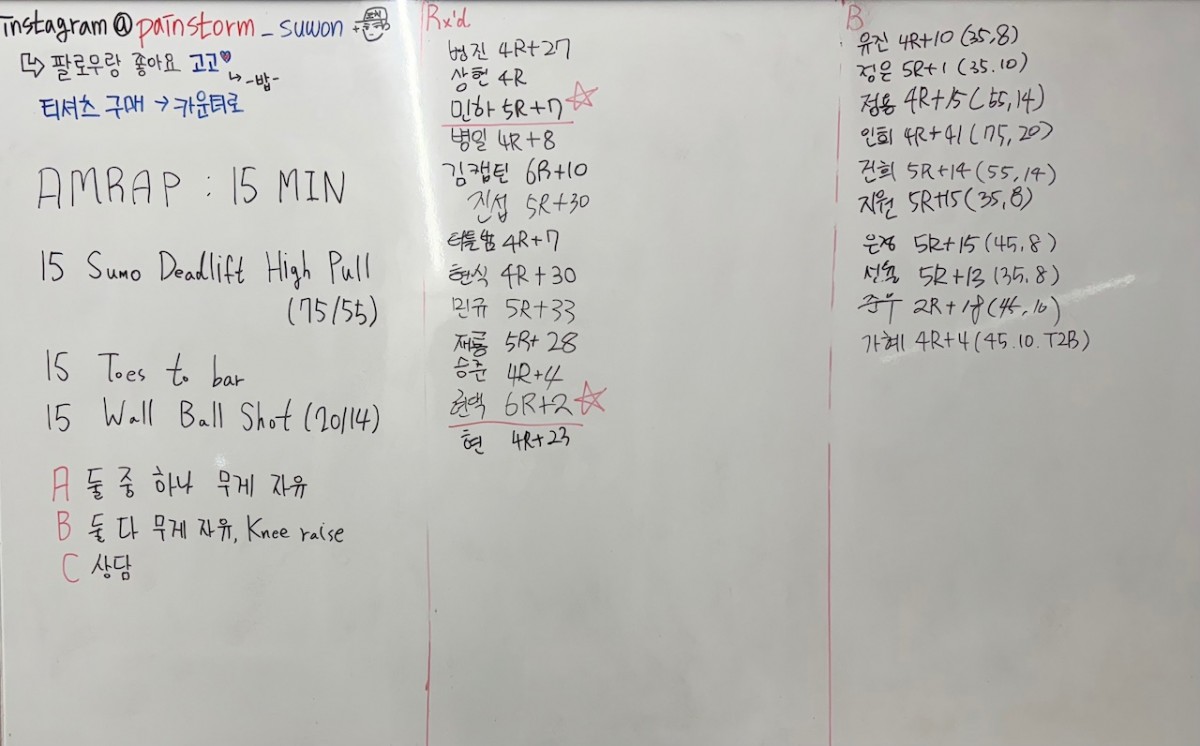 instagram @ painstorm_suwon
↳ 팔로우랑 좋아요 고고♥
↳ -밥-
티셔츠 구매 → 카운터로
AMRAP : 15 MIN
15 Sumo Deadlift High Pull
(75/55)
15 Toes to bar
15 Wall Ball Shot (20/14)
A 둘 중 하나 무게 자유
B 둘 다 무게 자유, Knee raise
C 상담
Rx'd
범진 4R+27
상헌 4R
민하 5R+7 ☆
병일 4R+8
김캡틴 6R+10
진섭 5R+30
4R+7
현식 4R+30
민규 5R+33
재룡 5R+28
승준 4R+4
현택 6R+2 ☆
현 4R+23
B
유진 4R+10 (35,8)
정은 5R+1 (35.10)
정용 4R+15 (55,14)
인희 4R+41 (75,20)
건희 5R+14 (55,14)
지원 5R+15 (35,8)
은정 5R+15 (45,8)
5R+13 (35.8)
준우 2R+18 (45,10)
가혜 4R+4 (45.10.T2B)